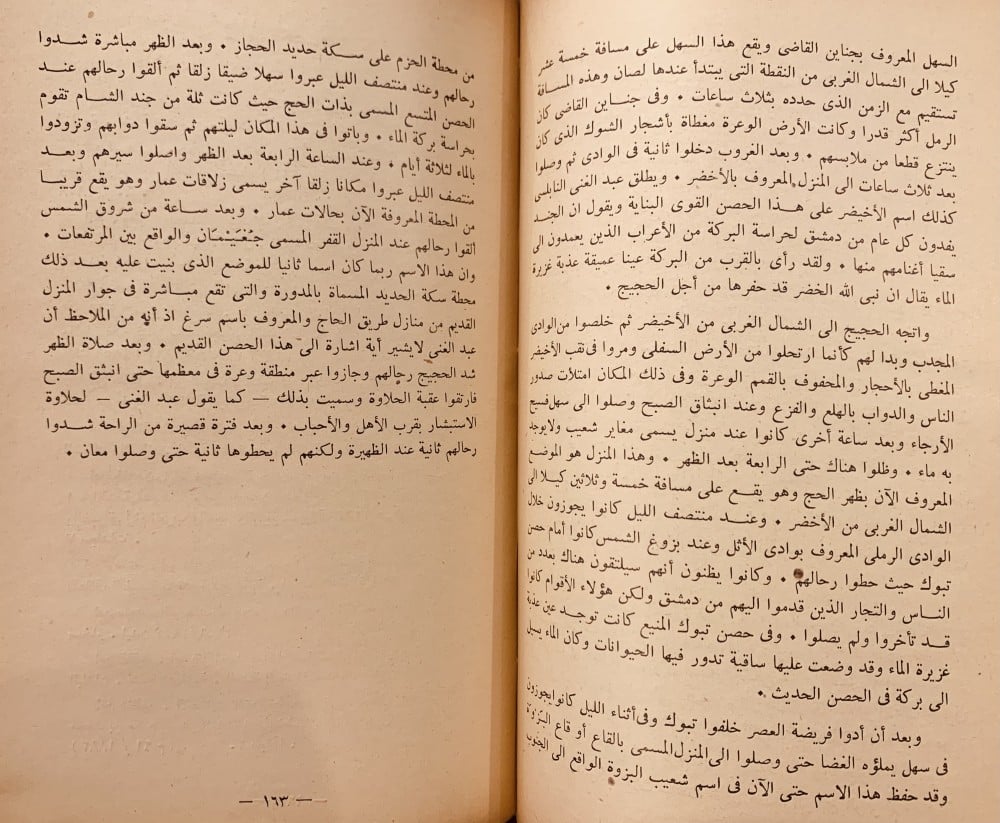 السهل المعروف بجناين القاضى ويقع هذا السهل على مسافة خمسة عشر
كيلا الى الشمال الغربى من النقطة التى يبتدأ عندها لصان وهذه المسافة
تستقيم مع الزمن الذى حدده بثلاث ساعات ٠ وفى جناين القاضى كان
الرمل أكثر قدرا وكانت الأرض الوعرة مغطاة بأشجار الشوك الذى كان
ينتزع قطعا من ملابسهم ٠ وبعد الغروب دخلوا ثانية فى الوادى ثم وصلوا
بعد ثلاث ساعات الى المنزل المعروف بالأخضر ٠ ويطلق عبد الغنى النابلسى
كذلك اسم الأخيضر على هذا الحصن القوى البناية ويقول ان الجند
يفدون كل عام من دمشق لحراسة البركة من الأعراب الذين يعمدون الى
سقيا أغنامهم منها ٠ ولقد رأى بالقرب من البركة عينا عميقة عذبة غزيرة
الماء يقال ان نبى الله الخضر قد حفرها من أجل الحجيج ٠
واتجه الحجيج الى الشمال الغربى من الأخيضر ثم خلصوا من الوادى
المجدب وبدا لهم كأنما ارتحلوا من الأرض السفلى ومروا فى نقب الأخيضر
المغطى بالأحجار والمحفوف بالقمم الوعرة وفى ذلك المكان امتلات صدور
الناس والدواب بالهلع والفزع وعند انبثاق الصبح وصلوا الى سهل فسيح
الأرجاء وبعد ساعة أخرى كانوا عند منزل يسمى مغاير شعيب ولايوجد
به ماء ٠ وظلوا هناك حتى الرابعة بعد الظهر ٠ وهذا المنزل هو الموضع
المعروف الآن بظهر الحج وهو يقع على مسافة خمسة وثلاثين كيلا الى
الشمال الغربى من الأخضر ٠ وعند منتصف الليل كانوا يجوزون خلال
الوادى الرملى المعروف بوادى الأثل وعند بزوغ الشمس كانوا أمام حصن
تبوك حيث حطوا رحالهم ٠ وكانوا يظنون أنهم سيلتقون هناك بعدد من
الناس والتجار الذين قدموا اليهم من دمشق ولكن هؤلاء الأقوام كانوا
قد تأخروا ولم يصلوا ٠ وفى حصن تبوك المنيع كانت توجد عين عذبة
غزيرة الماء وقد وضعت عليها ساقية تدور فيها الحيوانات وكان الماء يسيل
الى بركة فى الحصن الحديث ٠
وبعد أن أدوا فريضة العصر خلفوا تبوك وفى أثناء الليل كانوا يجوزون
فى سهل يملؤه الغضا حتى وصلوا الى المنزل المسمى بالقاع أو قاع البزوة
وقد حفظ هذا الاسم حتى الآن فى اسم شعيب البزوة الواقع الى الجنوب
من محطة الحزم على سكة حديد الحجاز ٠ وبعد الظهر مباشرة شدوا
رحالهم وعند منتصف الليل عبروا سهلا ضيقا زلقا ثم ألقوا رحالهم عند
الحصن المتسع المسمى بذات الحج حيث كانت ثلة من جند الشام تقوم
بحراسة بركة الماء ٠ وباتوا فى هذا المكان ليلتهم ثم سقوا دوابهم وتزودوا
بالماء لثلاثة أيام ٠ وعند الساعة الرابعة بعد الظهر واصلوا سيرهم وبعد
منتصف الليل عبروا مكانا زلقا آخر يسمى زلاقات عمار وهو يقع قريبا
من المحطة المعروفة الآن بحالات عمار ٠ وبعد ساعة من شروق الشمس
ألقوا رحالهم عند المنزل القفر المسمى جغيمان والواقع بين المرتفعات ٠
وان هذا الاسم ربما كان اسما ثانيا للموضع الذى بنيت عليه بعد ذلك
محطة سكة الحديد المسماة بالمدورة والتى تقع مباشرة فى جوار المنزل
القديم من منازل طريق الحاج والمعروف باسم سرغ اذ أنه من الملاحظ أن
عبد الغنى لايشير أية اشارة الى هذا الحصن القديم ٠ وبعد صلاة الظهر
شد الحجيج رحالهم وجازوا عبر منطقة وعرة فى معظمها حتى انبثق الصبح
فارتقوا عقبة الحلاوة وسميت بذلك — كما يقول عبد الغنى — لحلاوة
الاستبشار بقرب الأهل والأحباب ٠ وبعد فترة قصيرة من الراحة شدوا
رحالهم ثانية عند الظهيرة ولكنهم لم يحطوها ثانية حتى وصلوا معان ٠
— ١٦٣ —